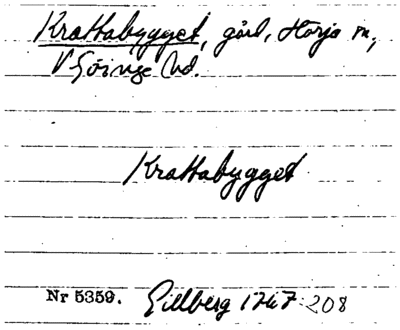 Krattabygget, gård, Horja sn,
V Göinge hd.
Krattabygget
Nr 5359. Gillberg 1767: 208